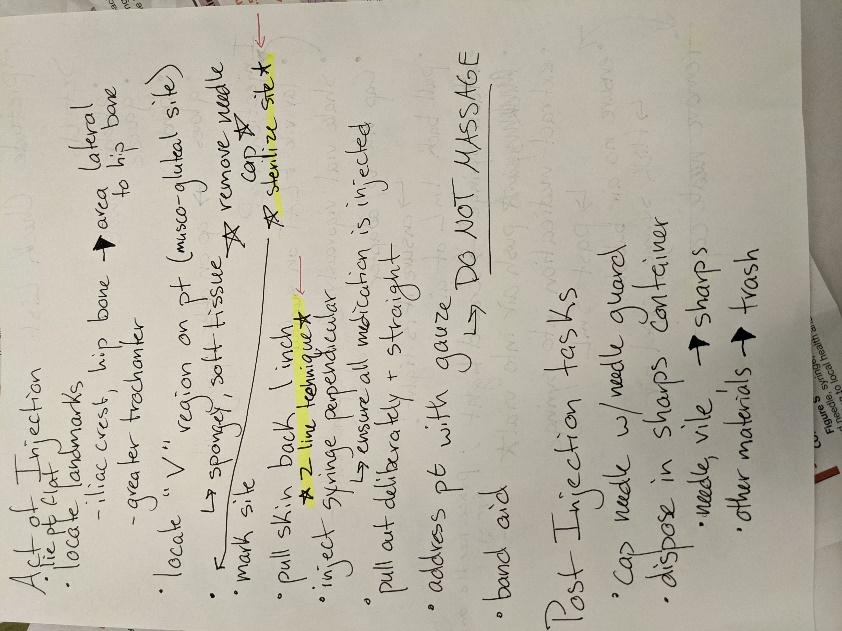 Act of Injection
• lie pt flat
• locate landmarks
- iliac crest, hip bone → area lateral to hip bone
- greater trochanter
• locate "V" region on pt (musco-gluteal site)
↳ spongey, soft tissue
☆ remove needle cap ☆
☆ sterilize site ☆
• mark site
• pull skin back 1 inch
★ Z line technique ★
• inject syringe perpendicular
↳ ensure all medication is injected
• pull out deliberately + straight
• address pt with gauze
↳ DO NOT MASSAGE
• band aid
Post Injection tasks
• cap needle w/ needle guard
• dispose in sharps container
• needle, vile → sharps
• other materials → trash
Figure 5
d needle, syringe
to local health and